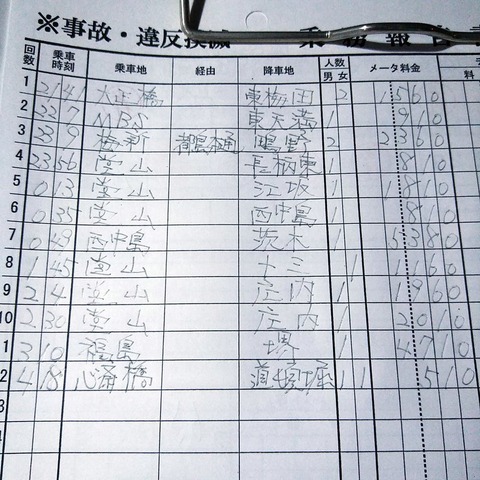 ※事故・違反撲滅 乗務報告書
回数 乗車時刻 乗車地 経由 降車地 人数 男 女 メータ料金 料
1 21 41 大正橋 東梅田 2 1560
2 22 7 MBS 東天満 1 910
3 23 9 梅新 都島通 鴫野 2 2360
4 23 56 堂山 長柄東 1 810
5 0 13 堂山 江坂 1 1810
6 0 35 堂山 西中島 1 810
7 0 49 西中島 茨木 1 5380
8 1 45 堂山 十三 1 1 1160
9 2 4 堂山 庄内 1 1960
10 2 30 堂山 庄内 1 20
1 3 10 福島 堺 1 4710
2 4 18 心斎橋 道頓堀 1 1 510
3
4